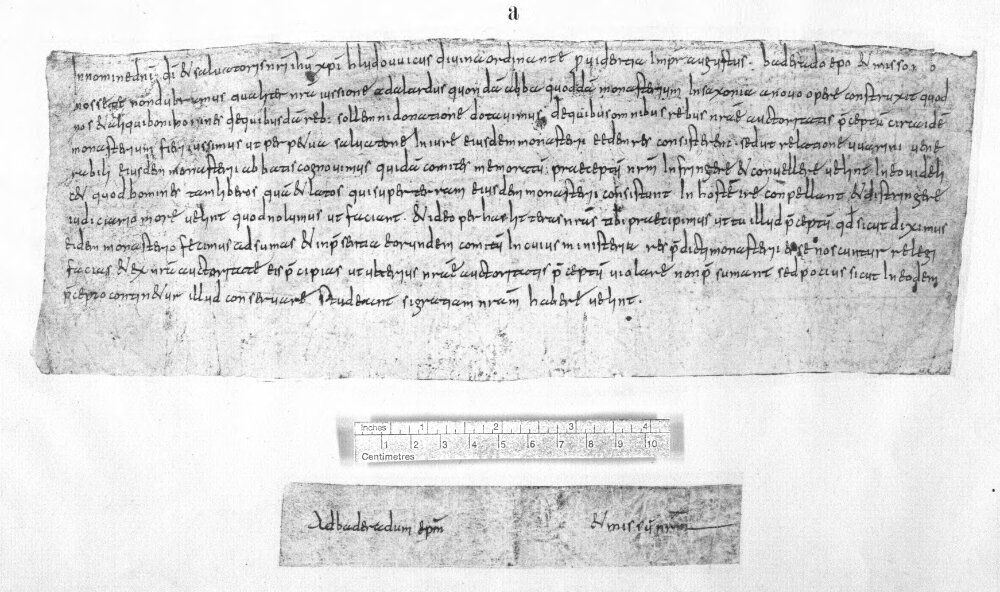 a
In nomine dni di & saluatoris nri ihu xpi hludouuicus diuina ordinante ꝓuidentia Impr augustus. baderado epo & misso nro
nosse te non dubitamus qualiter nra iussione adalardus quondã abba quoddã monasteriũ In saxonia a nouo opere construxit quod
nos & aliqui boni homines de quibusdã reb: sollemni donatione dotauimus, de quibus omnibus rebus nrae auctoritatis p̃ceptũ circa idẽ
monasterium fieri iussimus ut per &erna saluatione In iure eiusdem monasterii et edentes consisterent. sed ut relatione uuarini uene
rabilis eiusdem monasterii abbatis cognouimus quidã comites memoratũ praeceptũ nrm Infringere & conuellere uelint In eo uideli
c& quod homines tam liberos quã & latos qui super terram eiusdem monasterii consistunt In hoste ire conpellant & distringere
iudiciario more uelint quod nolumus ut faciant. & ideo per has litteras nras tibi praecipimus ut tu illud p̃ceptũ qd sicut diximus
eidem monasterio fecimus adsumas & in p̃sentia eorundem comitũ In cuius ministeriis res p̃dicti monasterii esse noscuntur relegi
facias & ex nra auctoritate eis p̃cipias ut ulterius nrae auctoritatis p̃ceptũ uiolare non p̃sumant sed pocius sicut In eodem
p̃cepto contin&ur illud conseruare studeant si gratiam nram habere uelint.
Inches 1 2 3 4
1 2 3 4 5 6 7 8 9 10
Centimetres
Ad baderadum epm & missũ nrm